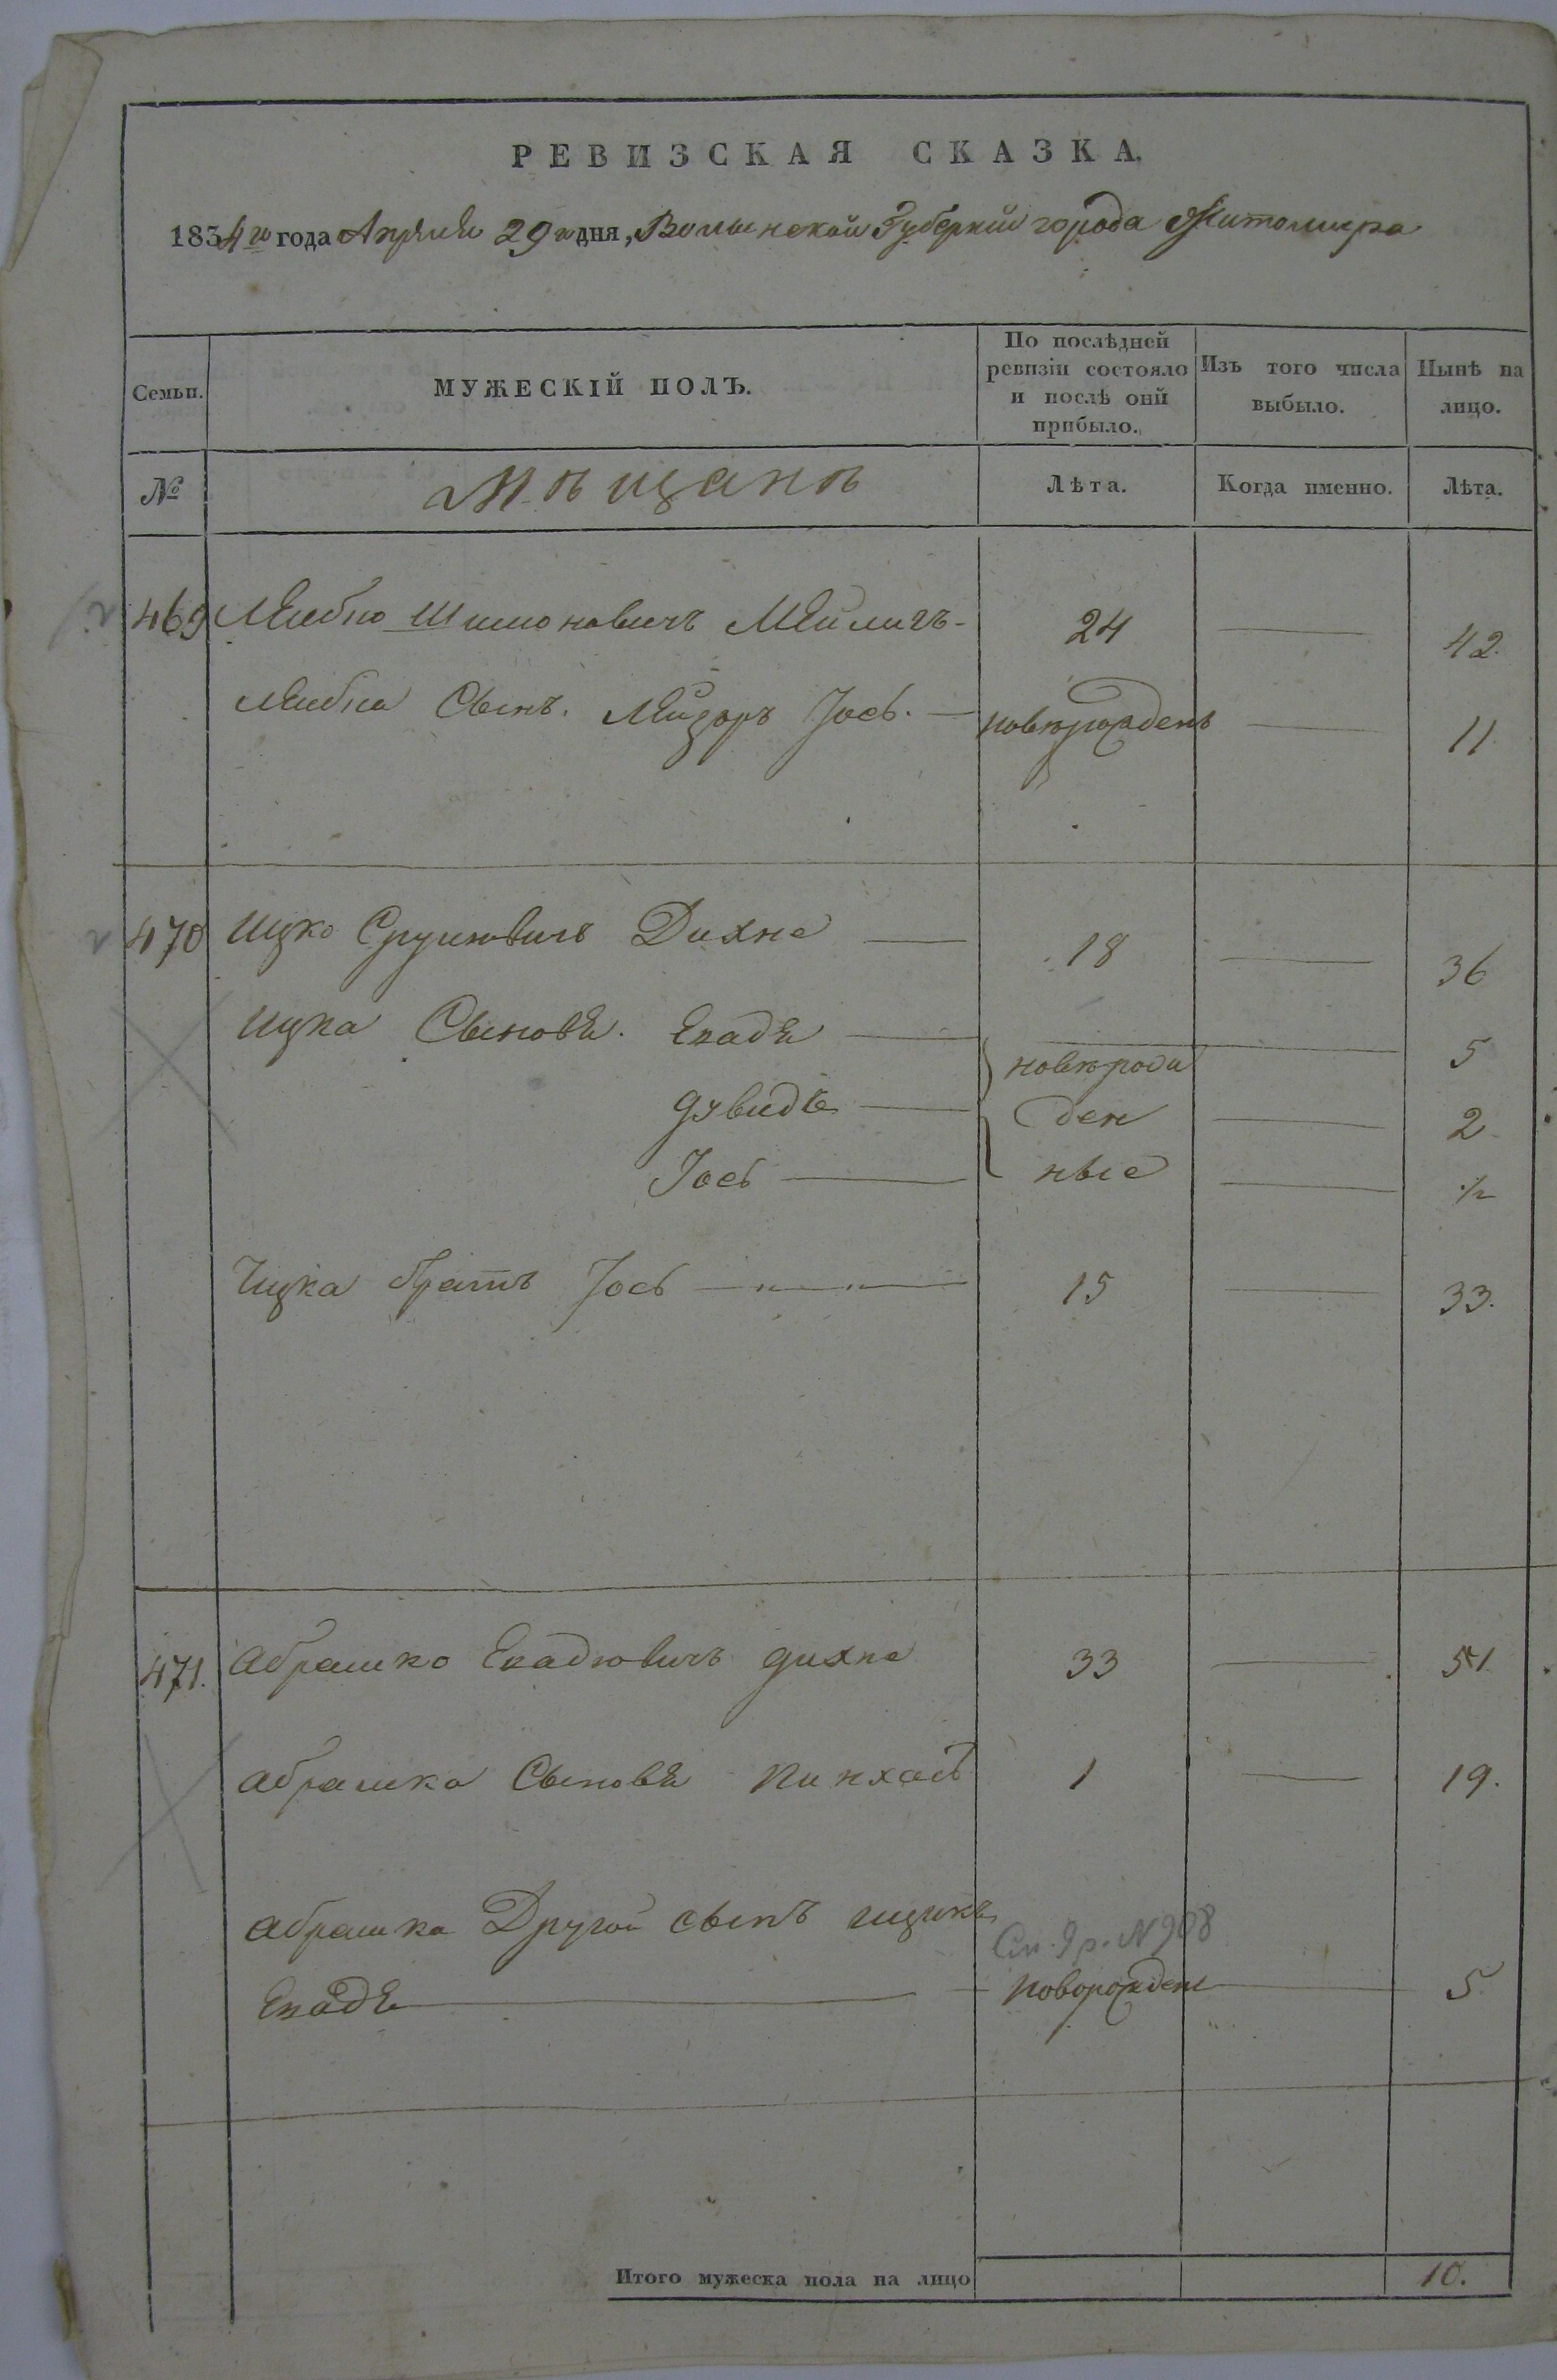 РЕВИЗСКАЯ СКАЗКА.
1834го года Апреля 29го дня, Волынской Губернии города Житомира
Семьи.
МУЖЕСКІЙ ПОЛЪ.
По послѣдней ревизіи состояло и послѣ оной прибыло.
Изъ того числа выбыло.
Нынѣ на лицо.
№
Мѣщанъ
Лѣта.
Когда именно.
Лѣта.
469 Лейбко Шимоновичъ 24 42
Лейбка Сынъ. Лейзоръ Іось. новорожденъ 11
470 Ицко Срулювичъ Дихне 18 36
Ицка Сыновья. Екадя 5
Дувидъ 2
Іось 1/2
новорожденные
Ицка братъ Іось 15 33.
471. Абрашко Екадювичъ Дихне 33 51
Абрашка Сыновья Пинхасъ 1 19.
Абрашка Другой сынъ Ицикъ
См. N 908
Екадя новорожден 5
Итого мужеска пола на лицо 10.